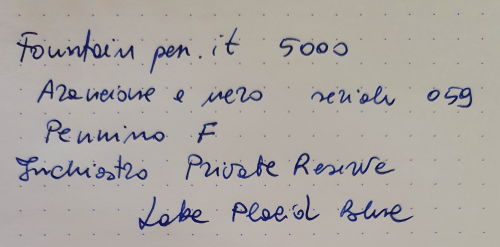 Fountain pen.it 5000
Arancione e nero seriale 059
Pennino F
Inchiostro Private Reserve
Lake Placid Blue